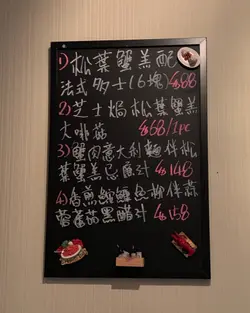 1) 松葉蟹羔配
法式多士(6塊) $88
2) 芝士焗松葉蟹羔
大啡菇 $68/1pc
3) 蟹肉意大利麵伴松
葉蟹羔忌廉汁 $148
4) 香煎鱸魚柳伴蒜
蓉蕃茄黑醋汁 $158